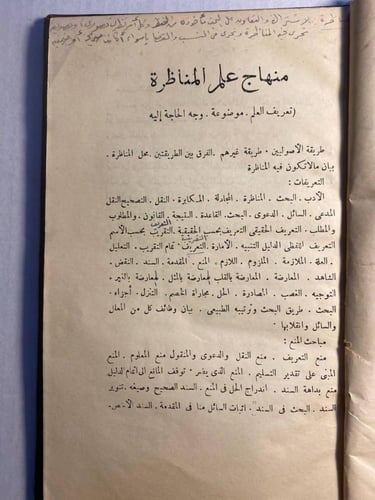 منهاج علم المناظرة
( تعريف العلم . موضوعة . وجه الحاجة إليه
طريقة الأصوليين . طريقة غيرهم . الفرق بين الطريقتين . محل المناظرة .
بيان مالاتكون فيه المناظرة
التعريفات :
الأدب . البحث . المناظرة . المجادلة . المكابرة . النقل . التصحيح النقل
المدعى . السائل . الدعوى . البحث . القاعدة . النتيجة . القانون . والمطلوب
والمطلب . التعريف الحقيقى التعريف بحسب الحقيقة بحسب الأسم
التعريف اللفظى الدليل التنبيه . الأمارة . . تمام التقريب . التعليل
. العلة . الملازمة . الملزوم . اللازم . المنع . المقدمة . السند . النقض .
الشاهد . المعارضة . المعارضة بالقلب المعارضة بالمثل . المعارضة بالغير .
التوجيه . الغصب . المصادرة . الحل . مجاراة الخصم . التنزل . أجزاء .
البحث . طريق البحث وترتيبه الطبيعى . بيان وظائف كل من المعلل
والسائل وانقلابها .
مباحث المنع :
منع التعريف . منع النقل والدعوى والمنقول منع المعلوم . المنع
المبنى على تقدير التسليم . المنع الذى يضر . توقف المانع الى اتمام الدليل
منع بداهة السند . اندراج الحل فى المنع . السند الصحيح وصيغه . تنوير
السند . البحث فى السند . اثبات السائل منافى المقدمة . السند الأخص .